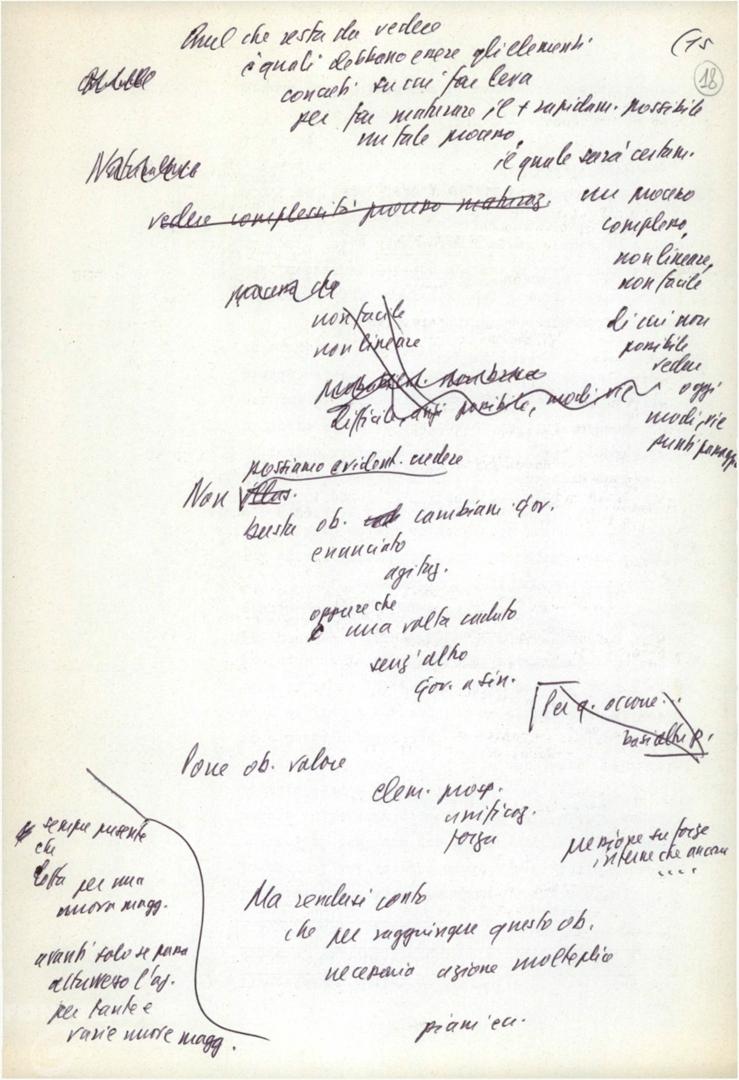 Quel che resta da vedere
(15
18
è quali debbano essere gli elementi
concreti su cui far leva
per far maturare il + rapidam. possibile
un tale processo,
il quale sarà certam.
Naturalmente
vedere complessità processo maturaz.
un processo
complesso,
non lineare,
non facile
di cui non
possibile
vedere
oggi
modi, vie
punti passagg
processo che
non facile
non lineare
difficile, oggi possibile, modi vie
possiamo evident. credere
Non illus.
basta ob. cambiam. gov.
enunciato
agitaz.
oppure che
una volta caduto
senz'altro
gov. a sin.
Per q. occorre..
basi altre p.
Pone ob. valore
elem. prosp.
unificaz.
forza
pressione su forze
interne che ancora
....
sempre presente
che
lotta per una
nuova magg.
avanti solo se passa
attraverso l'az.
per tante e
varie nuove magg.
Ma rendersi conto
che per raggiungere questo ob.
necessaria azione molteplice
piani ecc.